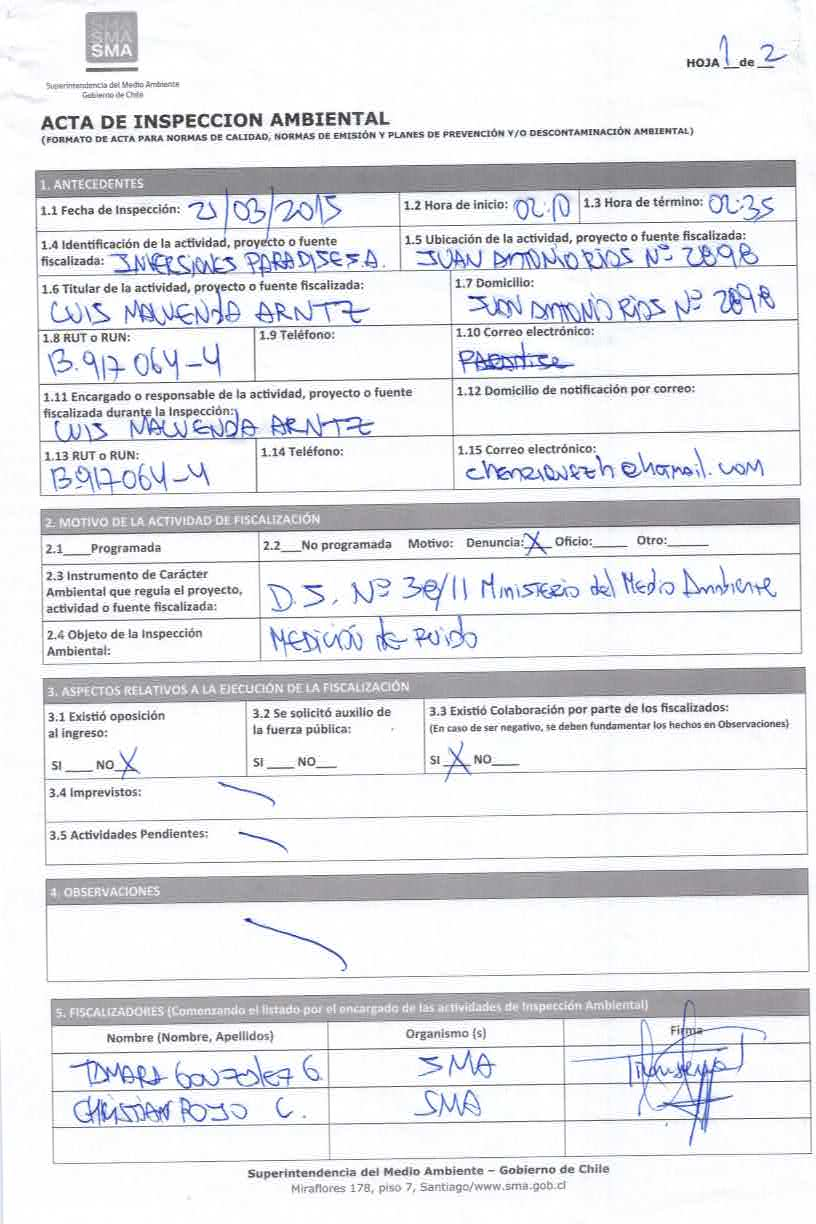 SMA
SMA
SMA
Superintendencia del Medio Ambiente
Gobierno de Chile
HOJA 1 de 2
ACTA DE INSPECCION AMBIENTAL
(FORMATO DE ACTA PARA NORMAS DE CALIDAD, NORMAS DE EMISIÓN Y PLANES DE PREVENCIÓN Y/O DESCONTAMINACIÓN AMBIENTAL)
1. ANTECEDENTES
1.1 Fecha de Inspección: 21/03/2015
1.2 Hora de inicio: 02:10
1.3 Hora de término: 02:35
1.4 Identificación de la actividad, proyecto o fuente
fiscalizada: INVERSIONES PARADISE S.A.
1.5 Ubicación de la actividad, proyecto o fuente fiscalizada:
JUAN ANTONIO RIOS Nº 2898
1.6 Titular de la actividad, proyecto o fuente fiscalizada:
LUIS MALUENDA ARNTZ
1.7 Domicilio:
JUAN ANTONIO RIOS Nº 2898
1.8 RUT o RUN:
13.917 064-4
1.9 Teléfono:
1.10 Correo electrónico:
1.11 Encargado o responsable de la actividad, proyecto o fuente
fiscalizada durante la Inspección:
LUIS MALUENDA ARNTZ
1.12 Domicilio de notificación por correo:
1.13 RUT o RUN:
13.917064-4
1.14 Teléfono:
1.15 Correo electrónico:
chenriquezh@hotmail.com
2. MOTIVO DE LA ACTIVIDAD DE FISCALIZACIÓN
2.1____Programada
2.2___No programada Motivo: Denuncia: X Oficio:_____ Otro:______
2.3 Instrumento de Carácter
Ambiental que regula el proyecto,
actividad o fuente fiscalizada:
D.S. Nº 38/11 Ministerio del Medio Ambiente
2.4 Objeto de la Inspección
Ambiental:
MEDICIÓN de RUIDO
3. ASPECTOS RELATIVOS A LA EJECUCIÓN DE LA FISCALIZACIÓN
3.1 Existió oposición
al ingreso:
SI ____ NO X
3.2 Se solicitó auxilio de
la fuerza pública:
SI ____ NO___
3.3 Existió Colaboración por parte de los fiscalizados:
(En caso de ser negativo, se deben fundamentar los hechos en Observaciones)
SI X NO____
3.4 Imprevistos:
3.5 Actividades Pendientes:
4. OBSERVACIONES
5. FISCALIZADORES (Comenzando el listado por el encargado de las actividades de Inspección Ambiental)
Nombre (Nombre, Apellidos) Organismo (s) Firma
TAMARA GONZALEZ G. SMA
CHRISTIAN ROJO C. SMA
Superintendencia del Medio Ambiente – Gobierno de Chile
Miraflores 178, piso 7, Santiago/www.sma.gob.cl